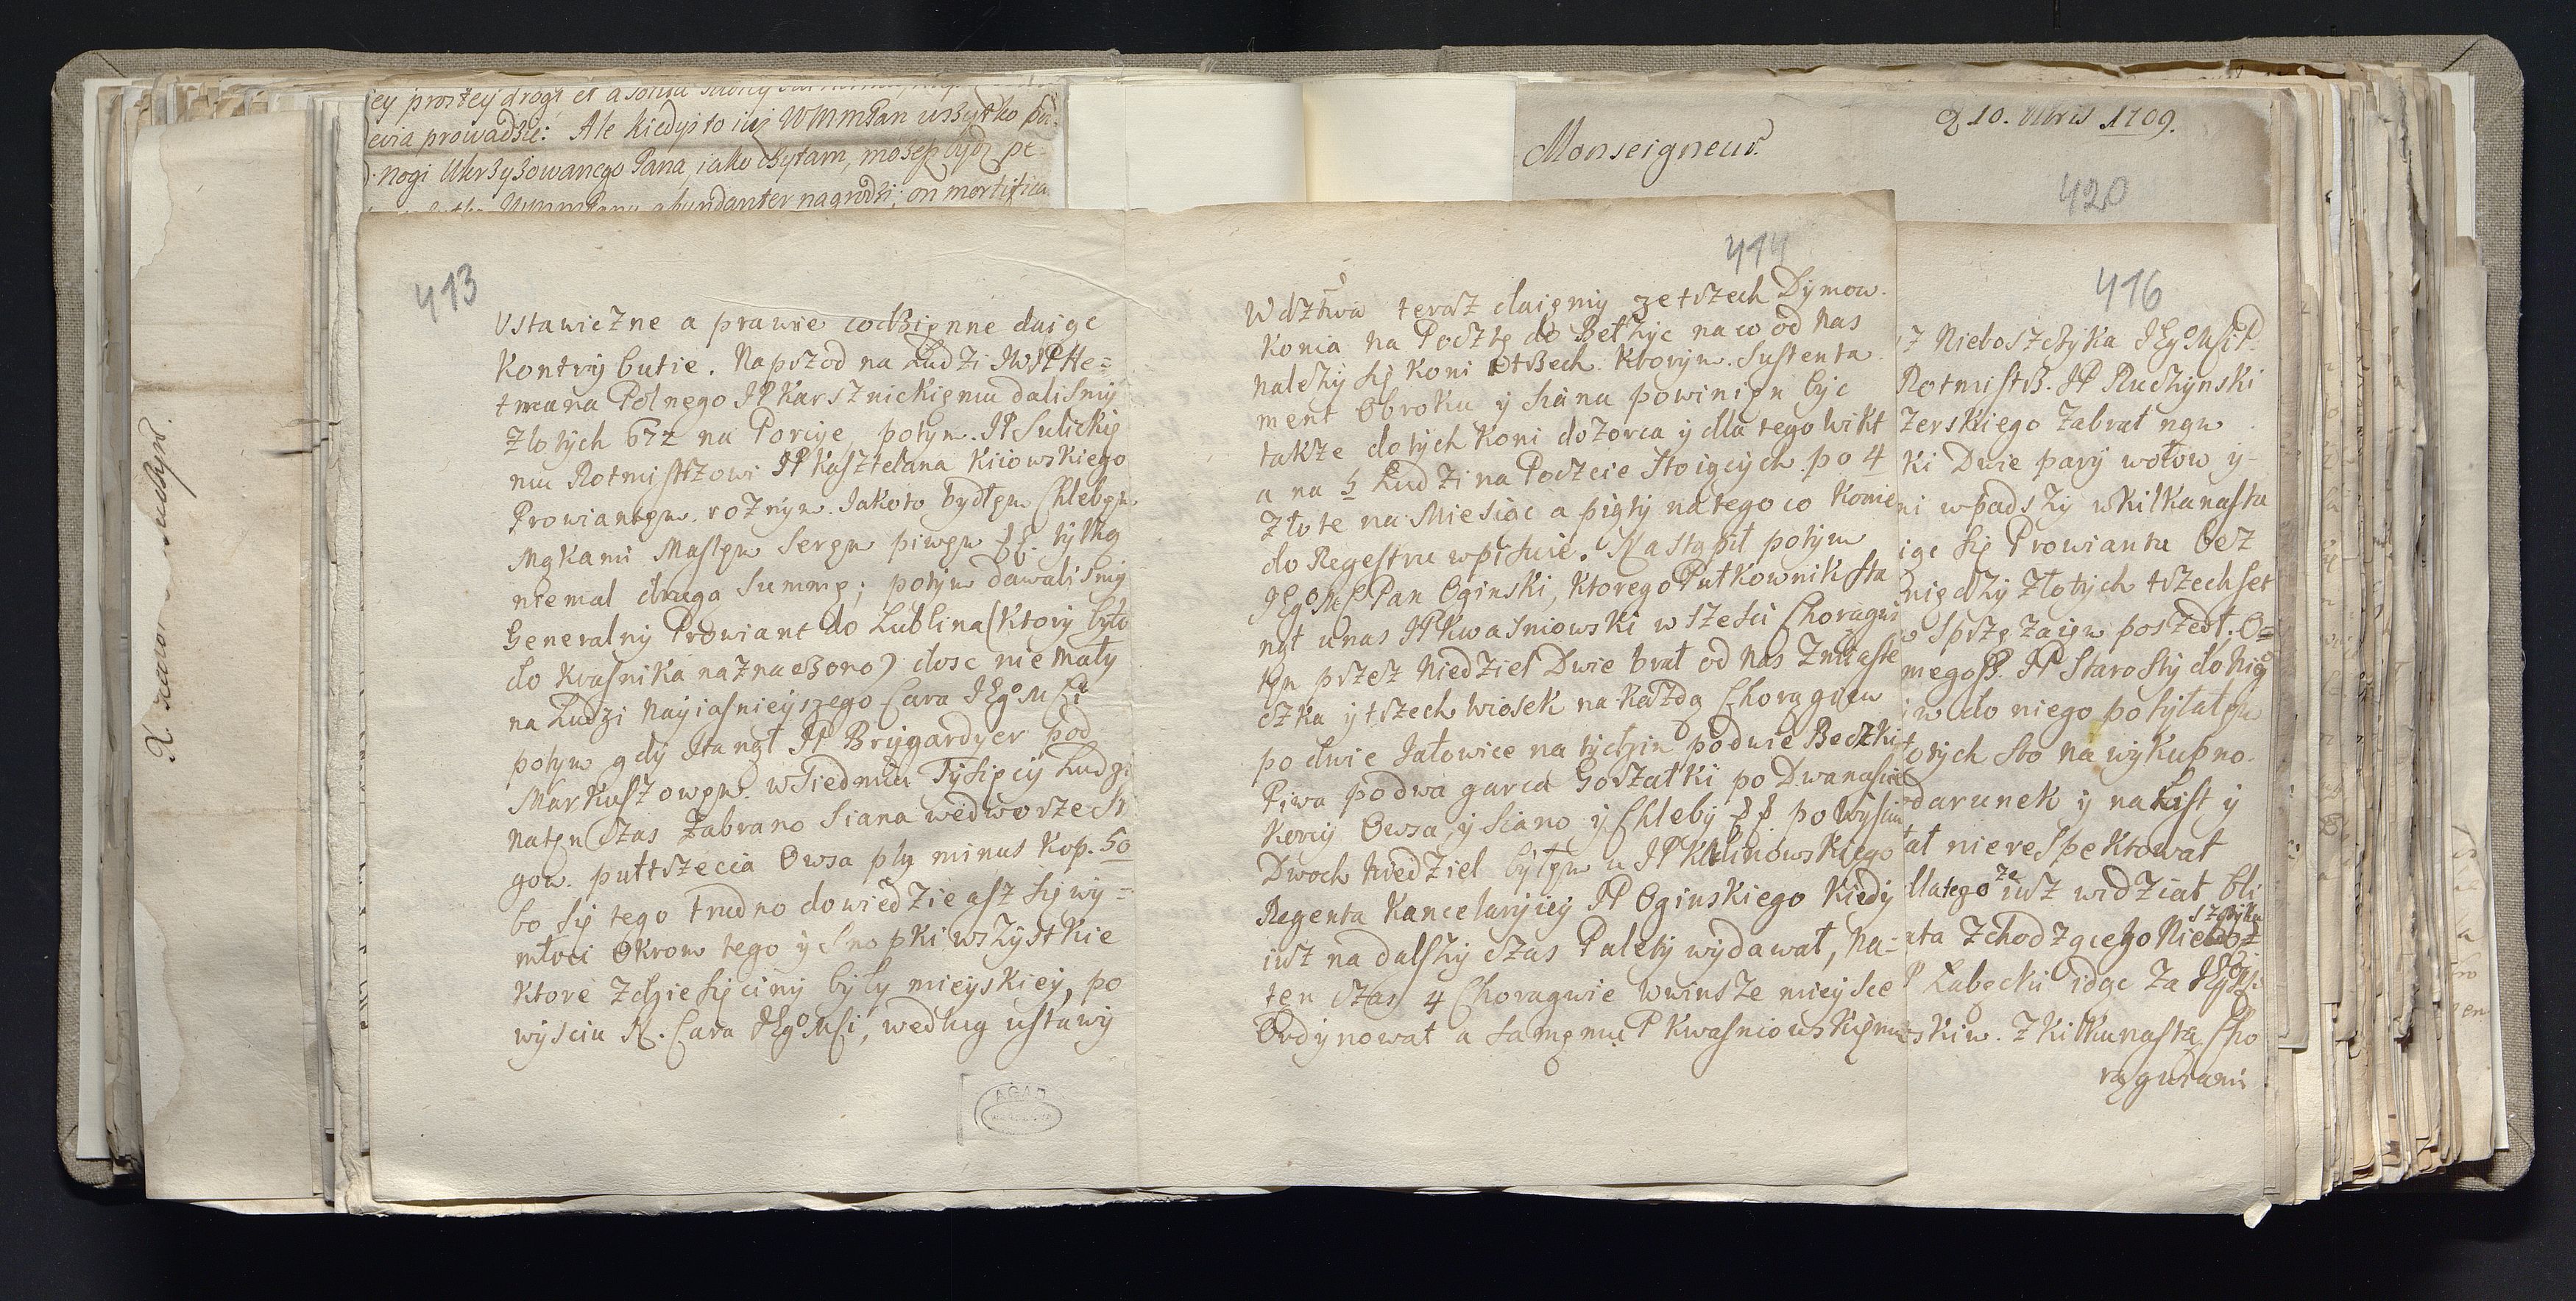 ey prostey drogi et a
ewia prowadzić: Ale kiedyś to iuż WMmPan wszytko pod
nogi Ukrzyżowanego Pana, iako czytam, możesz bydz pe
abundanter nagrodzi; on mortifica
Monseigneur.
D 10. 1709.
420
413
Ustawiczne a prawie codzięnne daiąc
Kontrybutie. Naprzod na Ludzi JWJPHe=
tmana Polnego JP Karsznickięmu dalismy
Złotych 672 na Porcye, potym. JP Sulickię
mu Rotmistrzowi JP Kasztelana Kiiowskiego
Prowiantęm. rożnym. Jakoto bydłęm Chlebęm
Mąkami Masłęm Seręm piwęm tylką
niemal druga Summę; potym dawalismy
Generalny Prowiant do Lublina (Ktory było
do Krasnika naznaczono) dosc nie mały
na Ludzi Nayiasnieyszego Cara JEgoMCi
potym gdy stanął JP Brygardyer pod
Markuszowęm. w Siedmiu Tysięcy Ludzi
natęn Czas Zabrano Siana wedworze St
gow. pułtrzecia Owsa plq minus Kop. 50
bo się tego trudno dowiedzie asz się wy=
młoci Okrom tego y Snopki wszystkie
Ktore Zdziesięciny były mieyskiey, po
wysciu N. Cara JEgoMCi, według ustawy
414
teraz daięmy zetrzech Dymow.
Konia na Pocztę do Bełżyc na co od Nas
należy się Koni otrzech. Ktorym. Sustenta
ment Obroku y siana powinięn byc
także dotych Koni dozorca y dla tego wikt
a na 5 Ludzi na Poczcie Stoiących po 4
Złote na Miesiąc a piąty na tego co Konie
do Regestru wpisuie. Nastąpił potym
JEgoMC Pan Oginski, Ktorego Pułkownik sta
nął unas JP Kwasniowski w szesci Choragwi
tęn przez Niedziel Dwie brał od Nas Zmiaste
czka y trzech Wiosek na Każdą Chorągiew
po dwie Jałowice na tydzin podwie Beczki
Piwa podwa garca Gorzałki po Dwanascie
Korcy Owsa, y Siano y Chleby po wysciu
Dwoch Niedziel byłęm u JP Klinowskiego
Regenta Kancelaryiey JP Oginskiego Kiedy
iusz na dalszy czas Palety wydawał, Na=
ten czas 4 Choragwie w winsze mieysce
Ordynował a samęmu P Kwasniowskięmu
416
z Nieboszczyka JEgo
Rotmistrz. JP Ruszynski
zerskiego Zabrał nąm
ki Dwie pary wołow y
ni wpadszy wkilkanasta
iąc się Prowiantu bez
niędzy Złotych trzechset
Sprzęzaięm poszedł. O=
mego. JP Starosty do Nigo
w do niego posyłałęm
otych sto na wykupno.
darunek y na List y
ał nierespektował
dlatego że iusz widział bli
ata Zchodzącego Nieboszczyka
P Łabęcki idąc Za JEgo
skim. Z Kilkunastą Cho
rągwiami